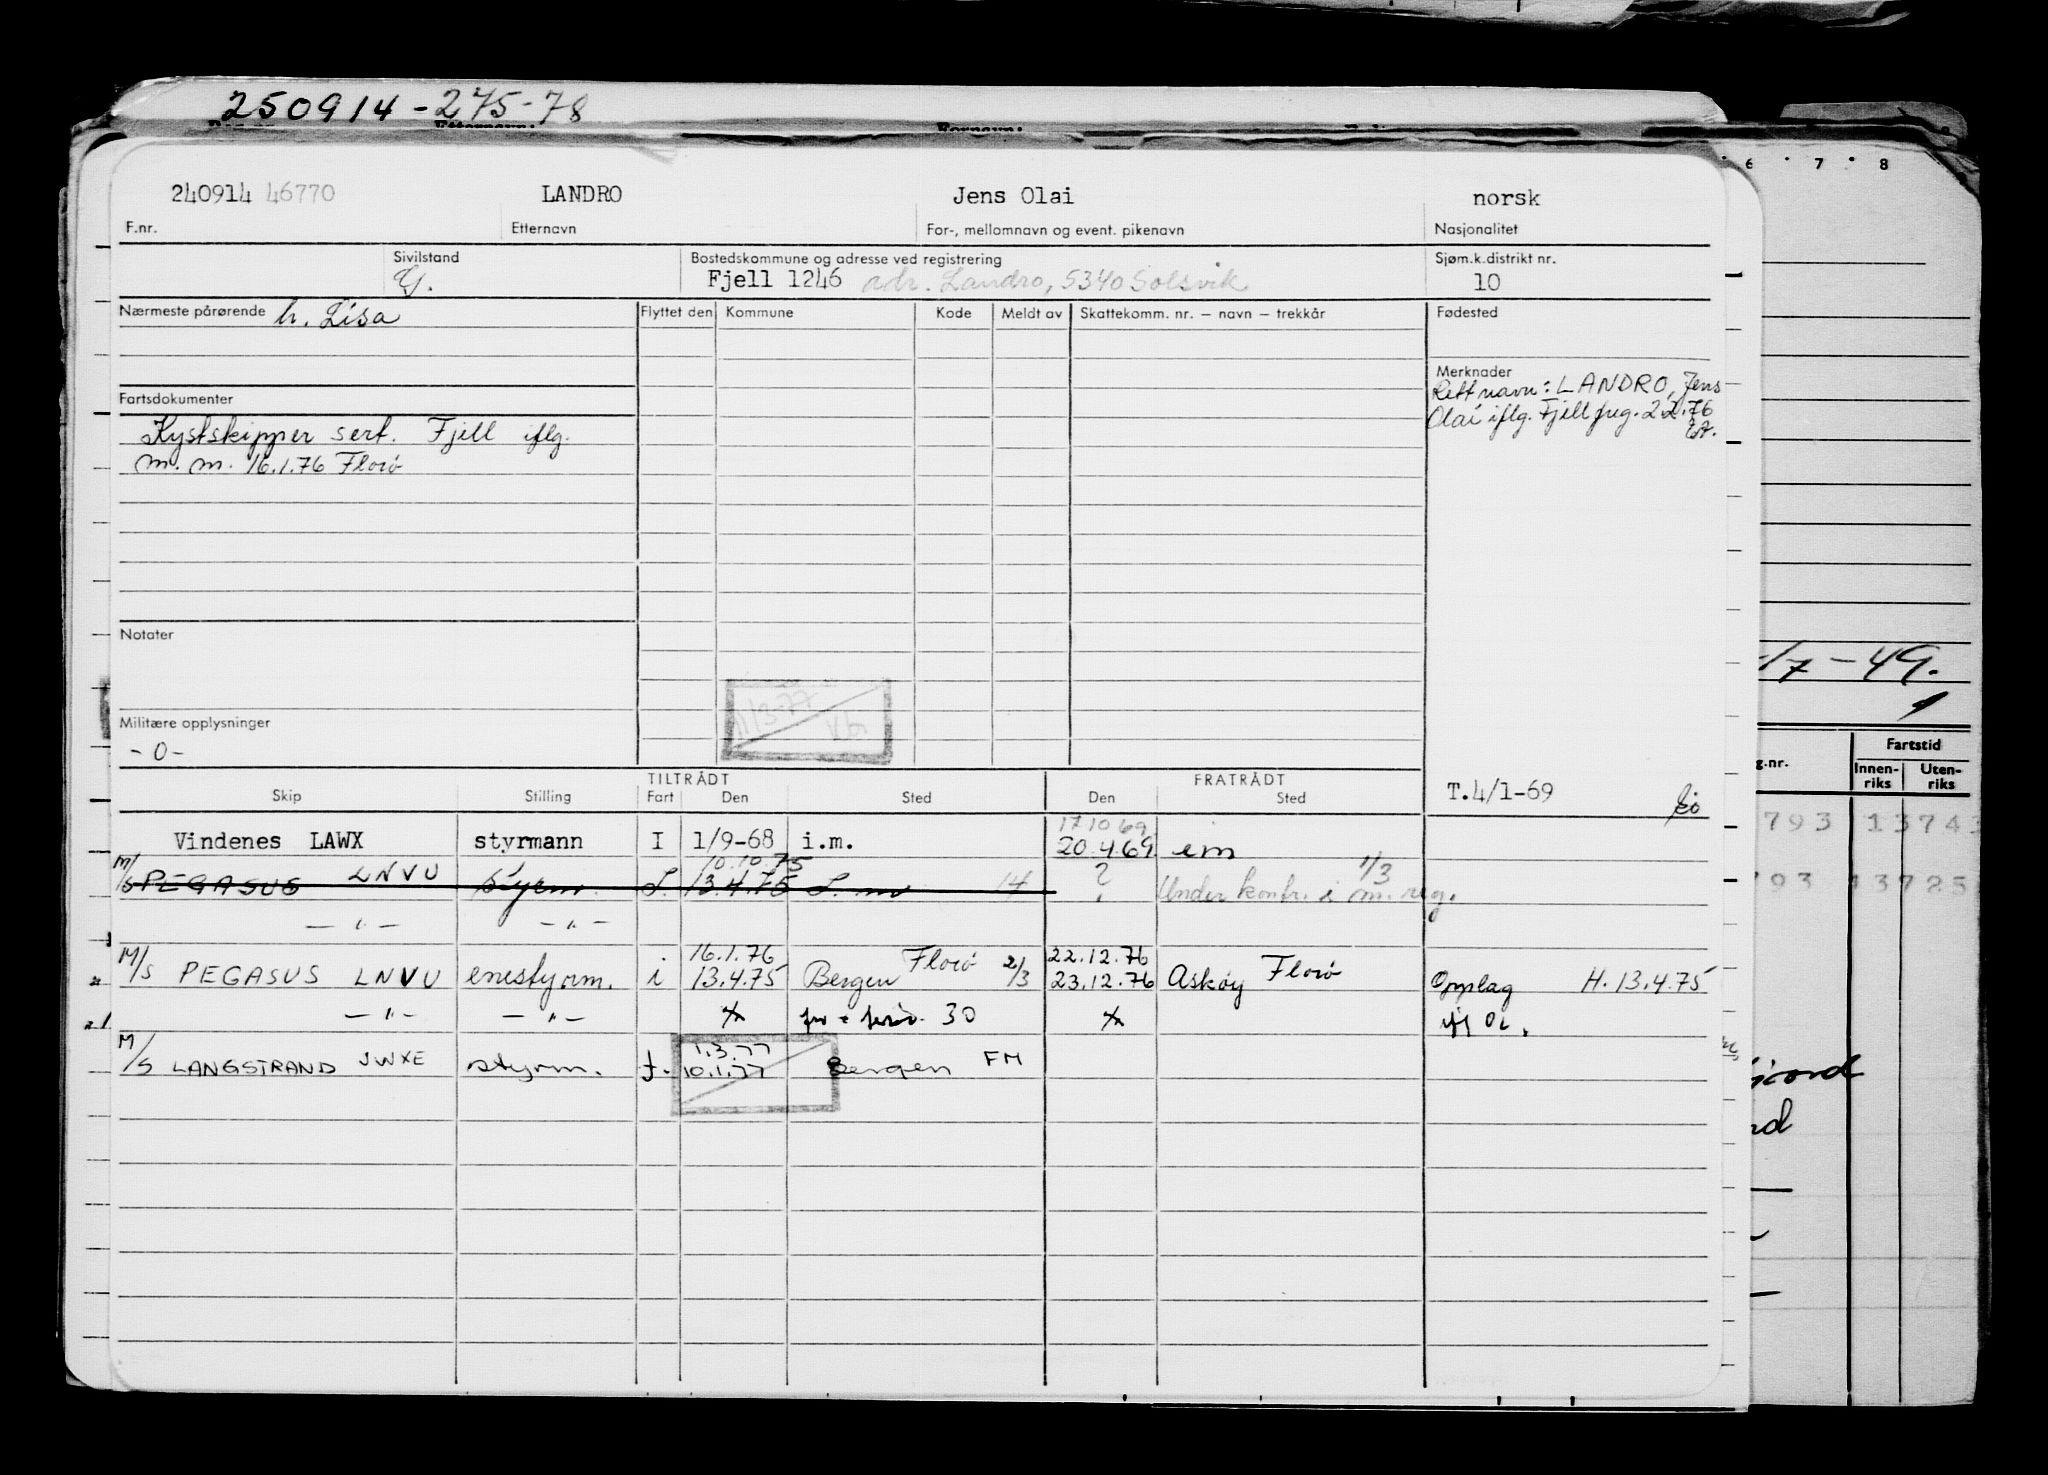 250914-275-78
6 7 8
240914 46770 LANDRO Jens Olai norsk
F.nr. Etternavn For-, mellomnavn og event. pikenavn Nasjonalitet
Sivilstand Bostedskommune og adresse ved registrering Sjøm.k.distrikt nr.
G. Fjell 1246 adr. Landro, 5340 Solsvik 10
Nærmeste pårørende h. Lisa Flyttet den Kommune Kode Meldt av Skattekomm. nr. — navn — trekkår Fødested
Merknader
Rett navn: LANDRO, Jens
Olai iflg. Fjell freg. 2.2.76
Fartsdokumenter
Kystskipper sert. Fjell iflg.
m.m. 16.1.76 Florö
Notater
1/3-77
Militære opplysninger
-0-
1/7-49.
TILTRÅDT FRATRÅDT
Skip Stilling Fart Den Sted Den Sted T.4/1-69
g.nr. Fartstid
Innenriks Utenriks
17.10.69
Vindenes LAWX styrmann I 1/9-68 i.m. 20.4.69 im
793 13743
10.10.75 1/3
M/S PEGASUS LNVU styrm. 13.4.75 14 ? Under kontr. i m. reg.
793 13725
— " — — " —
16.1.76 Florö 22.12.76 Florö
M/S PEGASUS LNVU enestyrm. i 13.4.75 Bergen 2/3 23.12.76 Askøy Opplag H. 13.4.75
— " — — " — 30
1.3.77
M/S LANGSTRAND JWXE styrm. 10.1.77 Bergen FM